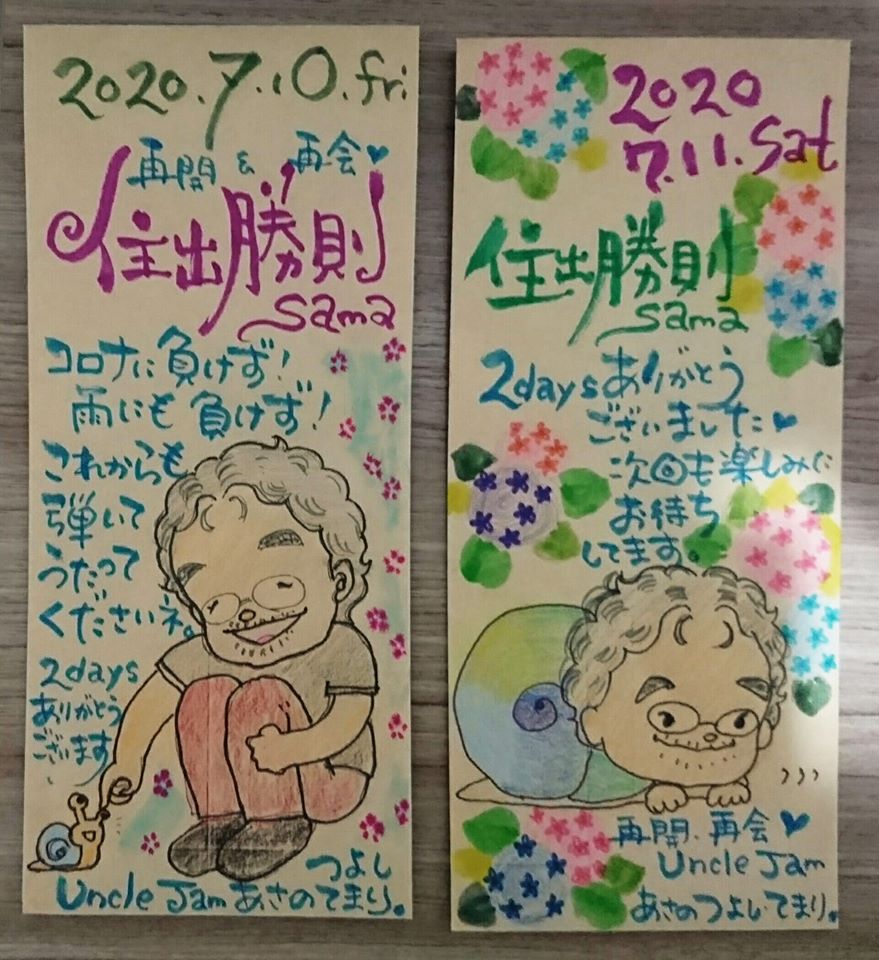 2020.7.10.fri
再開 & 再会♥
住出勝則
sama
コロナに負けず!
雨にも負けず!
これからも
弾いて
うたって
くださいネ。
2days
ありがとう
ございます
つよし
Uncle Jam あさの てまり。
2020
7.11.Sat
住出勝則
sama
2daysありがとう
ございました♥
次回も楽しみに
お待ち
してます。
再開.再会♥
Uncle Jam
あさのつよし.てまり。